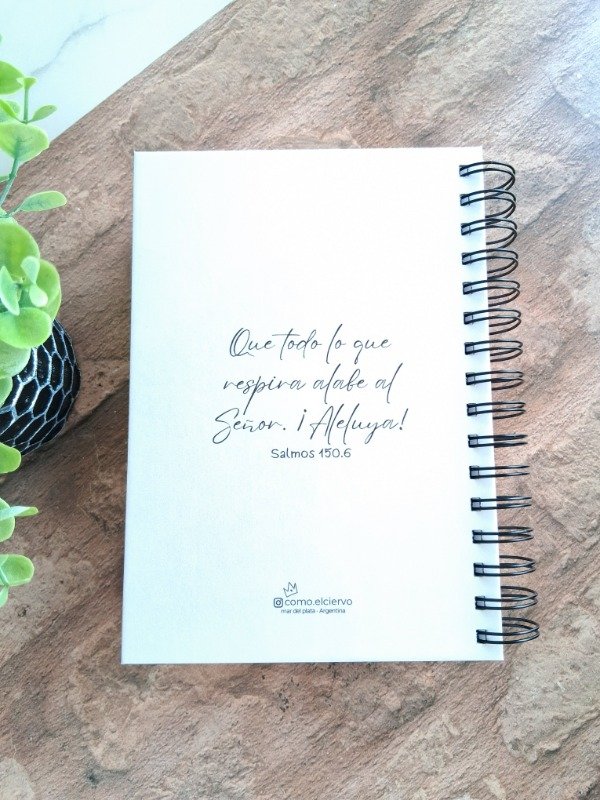 Que todo lo que
respira alabe al
Señor. ¡Aleluya!
Salmos 150.6
como.elciervo
mar del plata - Argentina